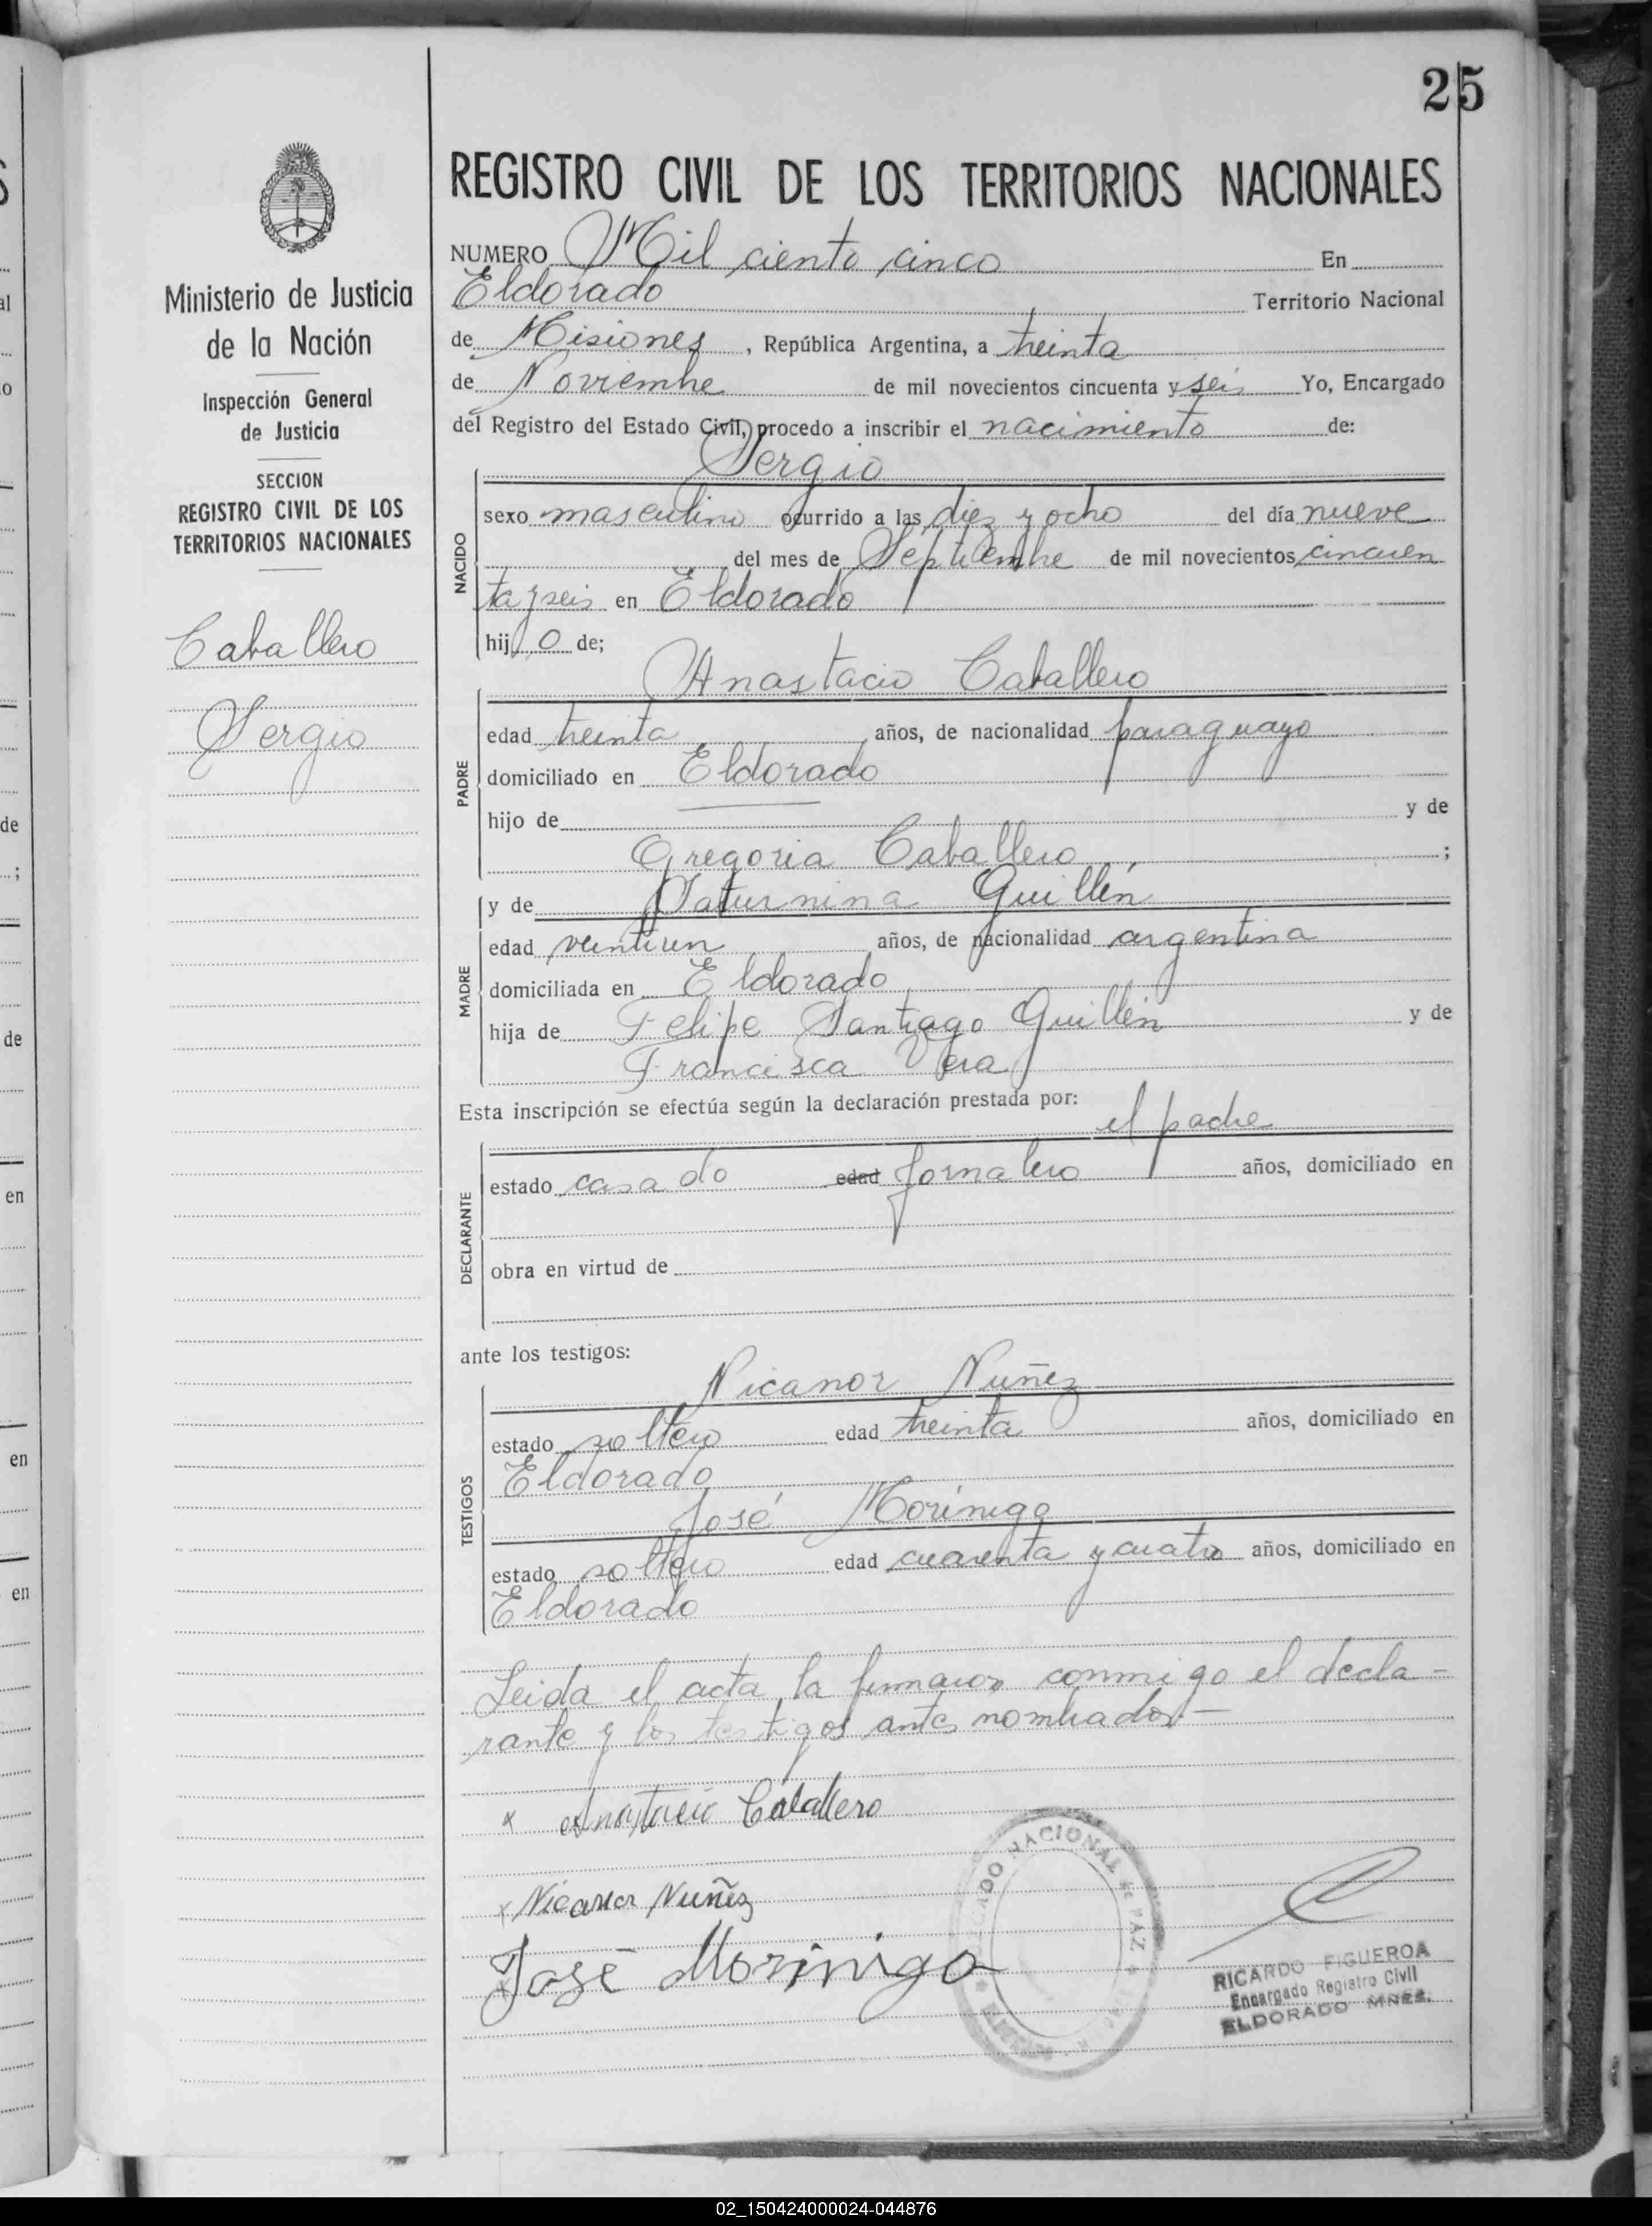 25
Ministerio de Justicia
de la Nación
Inspección General
de Justicia
SECCION
REGISTRO CIVIL DE LOS
TERRITORIOS NACIONALES
Caballero
Sergio
REGISTRO CIVIL DE LOS TERRITORIOS NACIONALES
NUMERO Mil ciento cinco En
Eldorado Territorio Nacional
de Misiones, República Argentina, a treinta
de Noviembre de mil novecientos cincuenta y seis Yo, Encargado
del Registro del Estado Civil, procedo a inscribir el nacimiento de:
Sergio
NACIDO
sexo masculino ocurrido a las diez y ocho del día nueve
del mes de Septiembre de mil novecientos cincuen
ta y seis en Eldorado
hijo de;
Anastacio Caballero
PADRE
edad treinta años, de nacionalidad paraguayo
domiciliado en Eldorado
hijo de y de
Gregoria Caballero ;
y de Saturnina Guillén
MADRE
edad veintiun años, de nacionalidad argentina
domiciliada en Eldorado
hija de Felipe Santiago Guillén y de
Francisca Vera
Esta inscripción se efectúa según la declaración prestada por:
el padre
DECLARANTE
estado casado edad jornalero años, domiciliado en
obra en virtud de
ante los testigos:
Nicanor Nuñez
TESTIGOS
estado soltero edad treinta años, domiciliado en
Eldorado
José Morinigo
estado soltero edad cuarenta y cuatro años, domiciliado en
Eldorado
Leida el acta, la firmaron conmigo el decla-
rante y los testigos antes nombrados-
x Anastacio Caballero
x Nicanor Nuñez
José Morinigo
NACIONAL de PAZ
RICARDO FIGUEROA
Encargado Registro Civil
ELDORADO MNES.
02_150424000024-044876